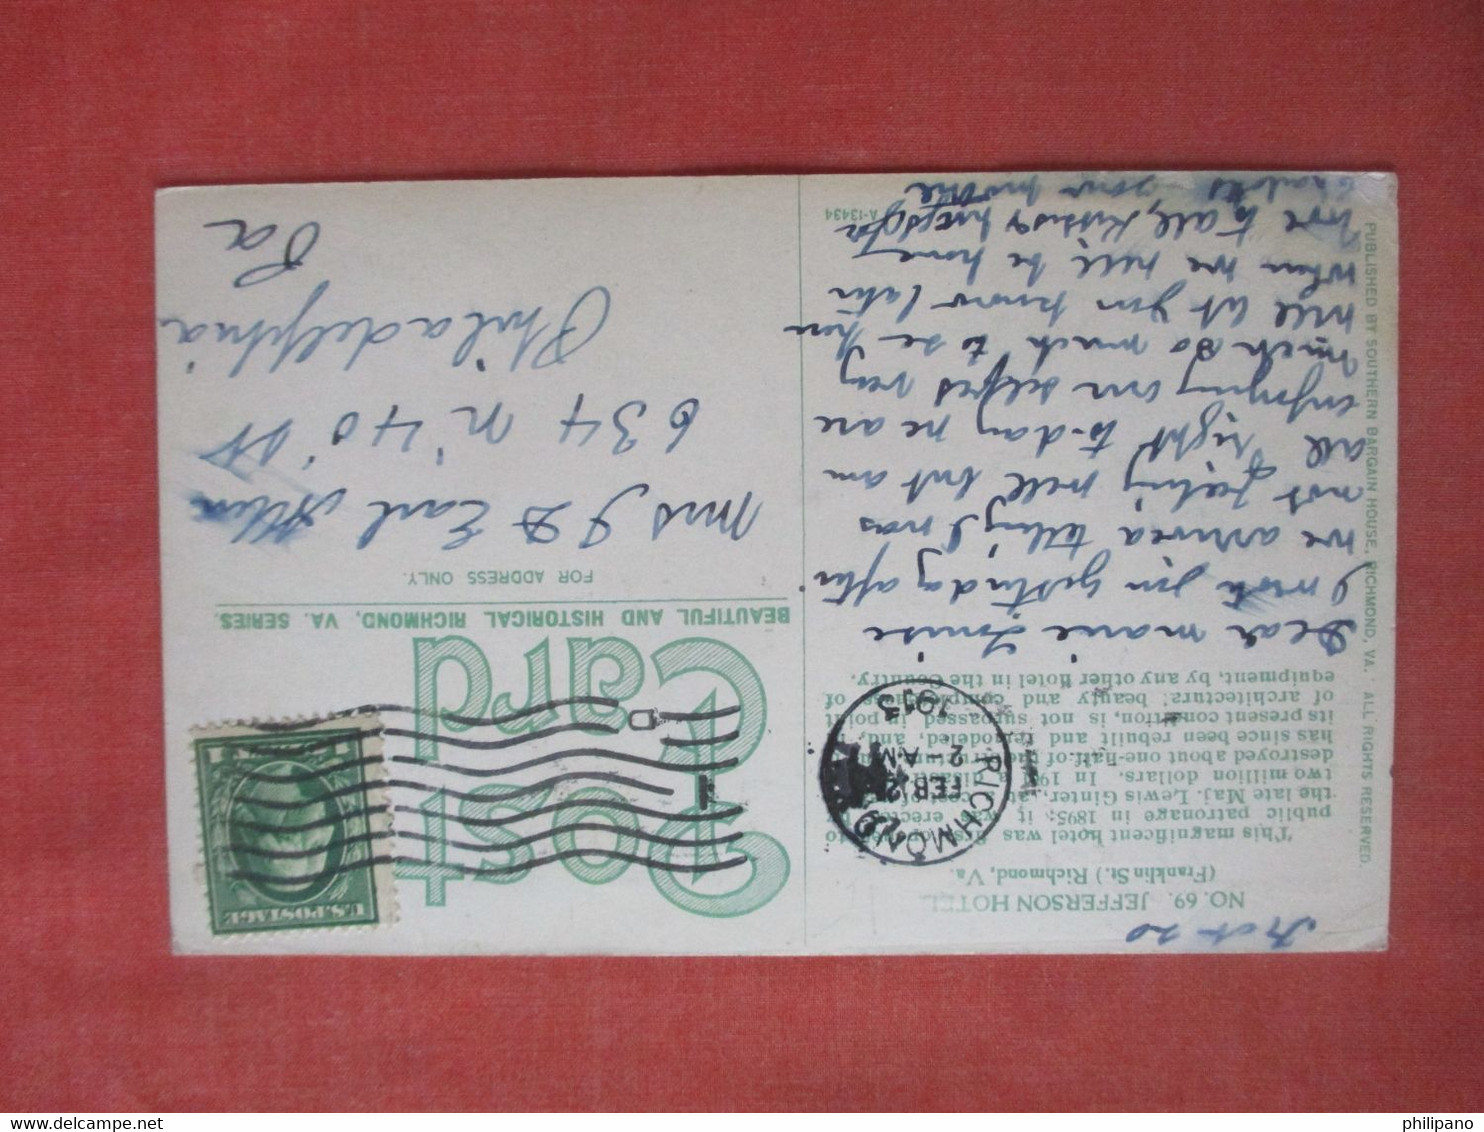 Post
Card
BEAUTIFUL AND HISTORICAL RICHMOND, VA. SERIES.
FOR ADDRESS ONLY.
U.S. POSTAGE
RICHMOND
FEB 2
2 -
A.M.
1913
NO. 69. JEFFERSON HOTEL
(Franklin St.) Richmond, Va.
This magnificent hotel was to
public patronage in 1895; it was erected by
the late Maj. Lewis Ginter, at a cost of
two million dollars. In
destroyed about one-half of the structure, it
has since been rebuilt and remodeled, and, in
its present condition, is not surpassed, in point
of architecture, beauty and completeness of
equipment, by any other hotel in the Country.
Dear Marie Louise
I wrote you yesterday after
we arrived telling I was
not feeling well but am
all right to-day we are
enjoying our selves very
much so much to see here
will let you know later
when we will be home
love to all, kisses & hugs for
your mother
Mrs J D Earl Allen
634 N 40 St
Philadelphia
Pa
A-13434
PUBLISHED BY SOUTHERN BARGAIN HOUSE, RICHMOND, VA. ALL RIGHTS RESERVED.
philipano
delcampe.net